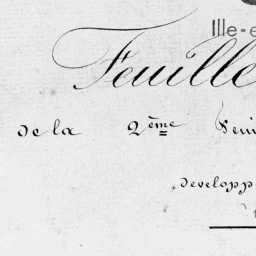 Ille-e
Feuille
de la 2ème Feui
developp